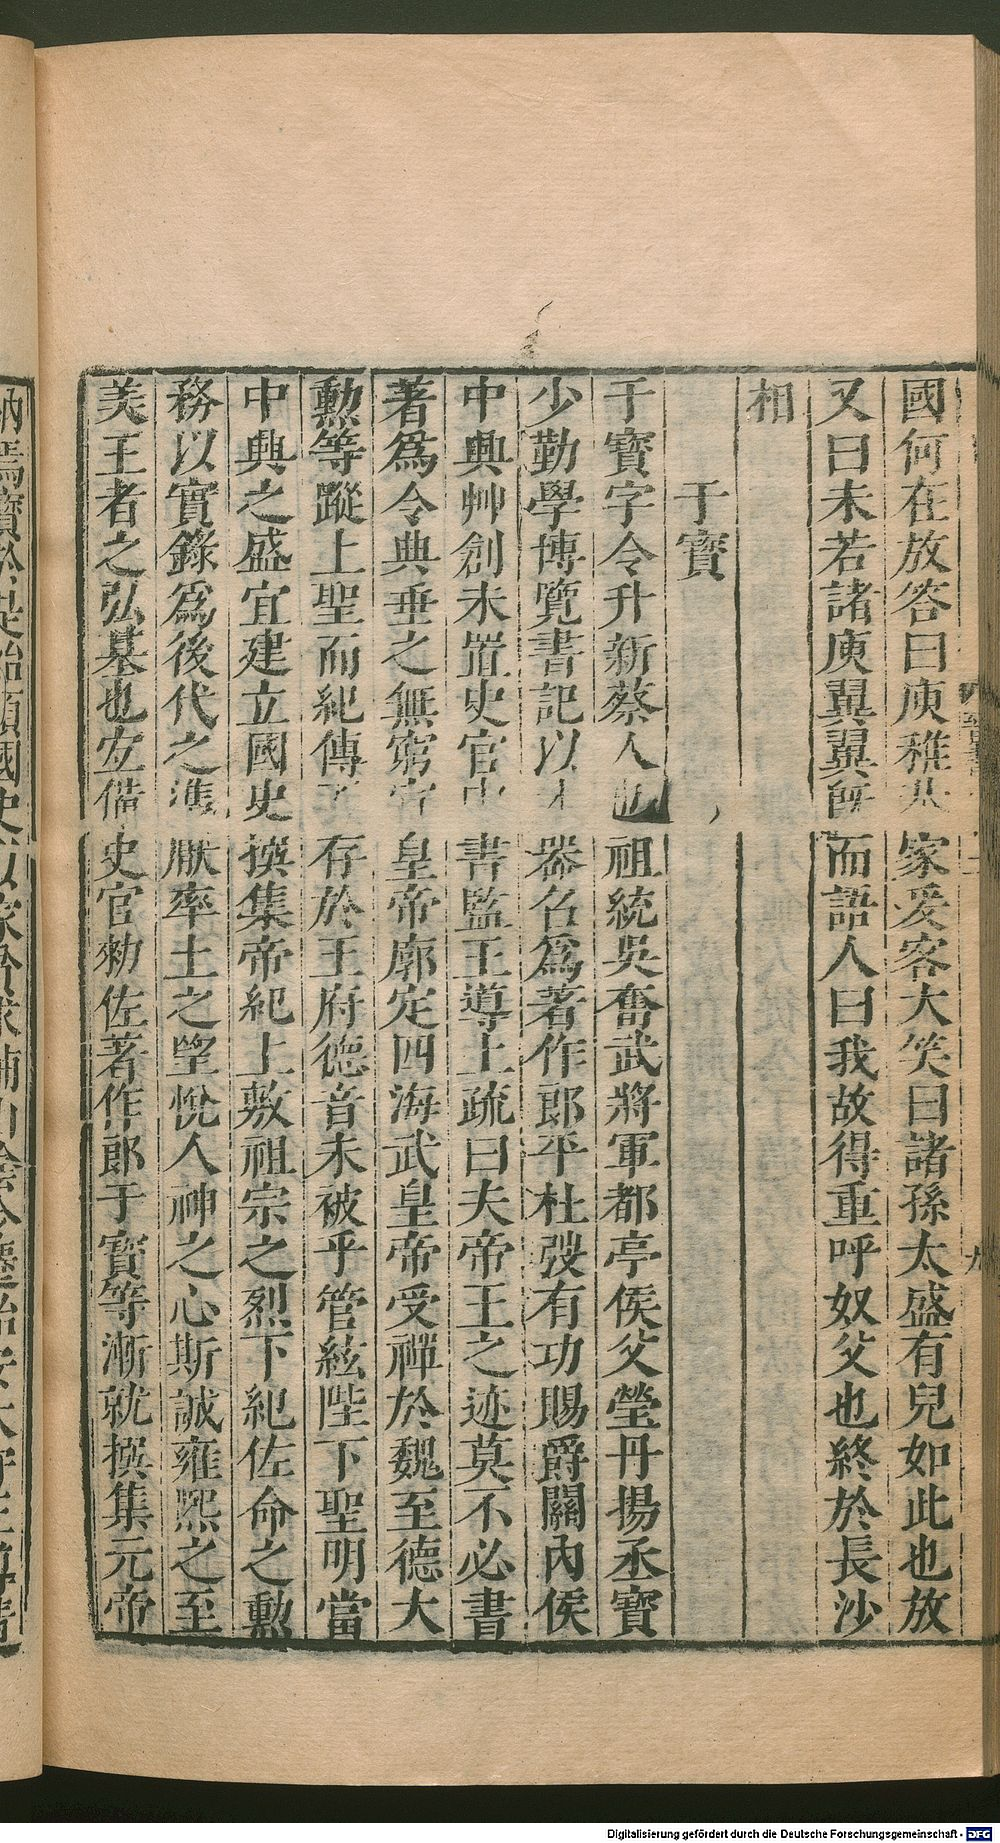 國何在放答曰庾稚恭家爰客大笑曰諸孫太盛有兒如此也放
又曰未若諸庾翼翼旣而語人曰我故得重呼奴父也終於長沙
相
于寶
于寶字令升新蔡人也祖統吳奮武將軍都亭侯父瑩丹揚丞寶
少勤學博覽書記以才器召爲著作郎平杜弢有功賜爵關內侯
中興艸創未置史官中書監王導上疏曰夫帝王之迹莫不必書
著爲令典垂之無窮宣皇帝廓定四海武皇帝受禪於魏至德大
勳等蹤上聖而紀傳不存於王府德音未被乎管絃陛下聖明當
中興之盛宜建立國史撰集帝紀上敷祖宗之烈下紀佐命之勳
務以實錄爲後代之準厭率土之望悅人神之心斯誠雍熙之至
美王者之弘基也宜備史官勑佐著作郎于寶等漸就撰集元帝
Digitalisierung gefördert durch die Deutsche Forschungsgemeinschaft - DFG